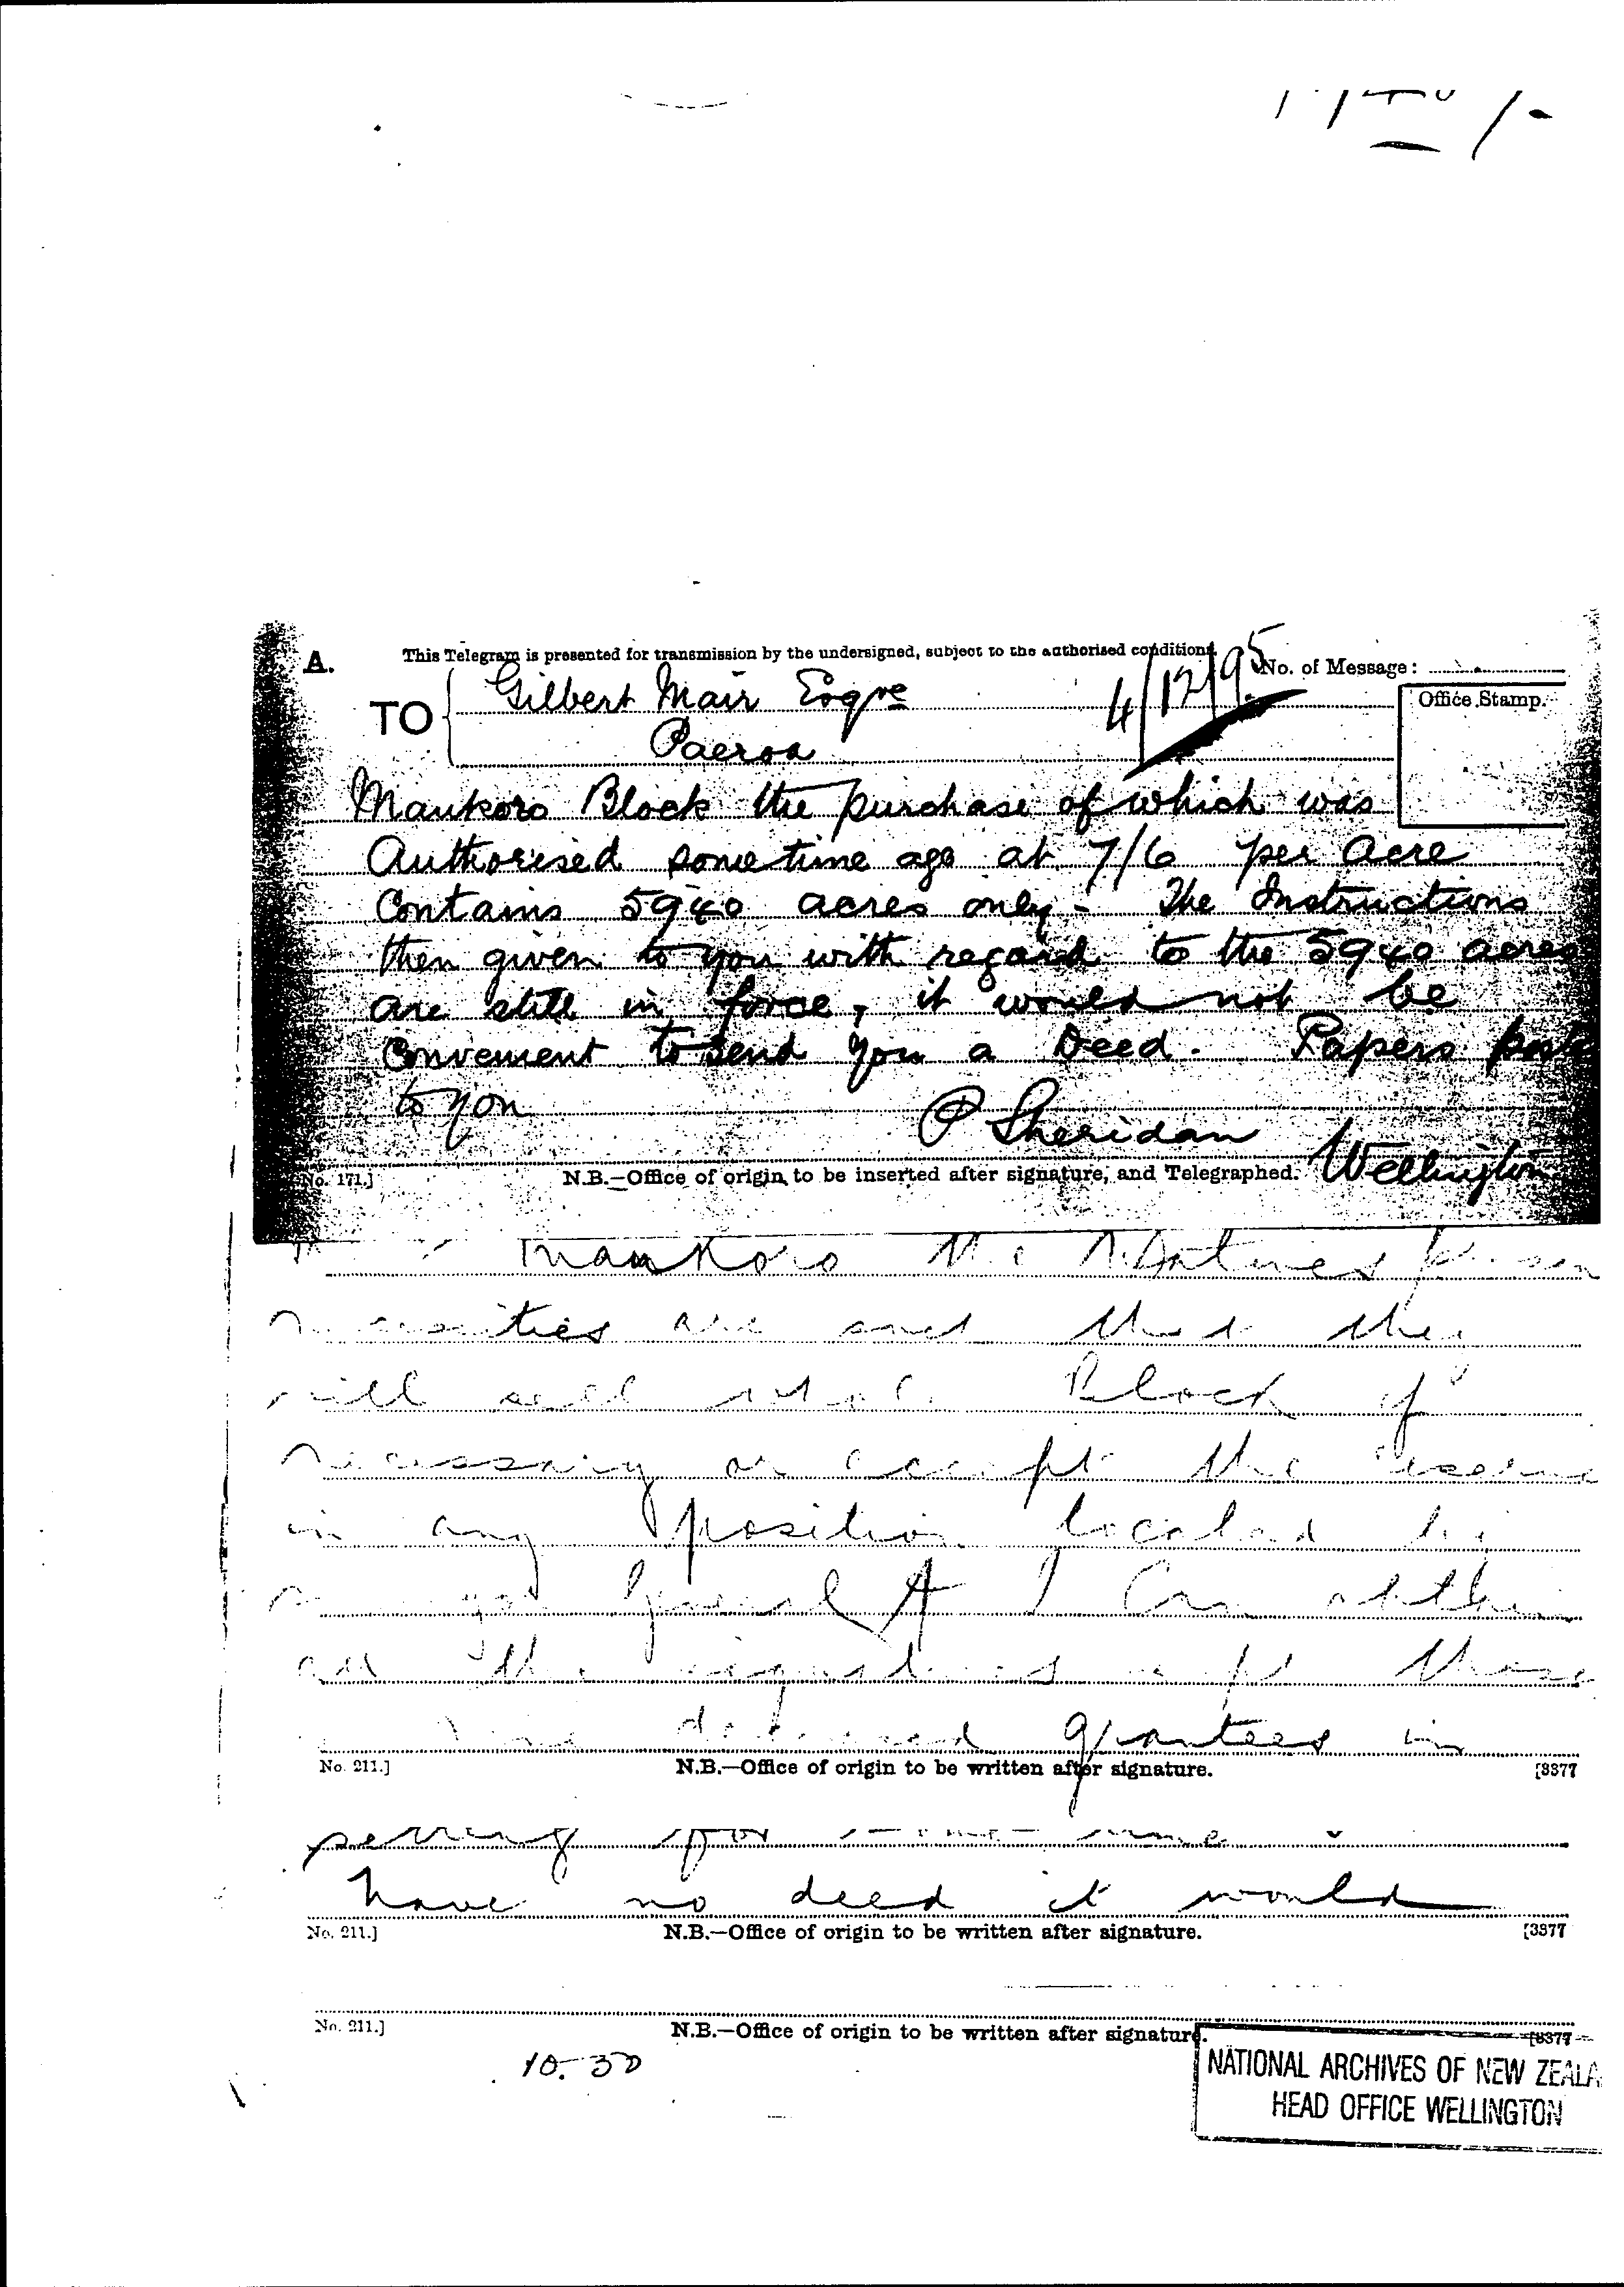 A.
This Telegram is presented for transmission by the undersigned, subject to the authorised conditions.
4/12/95
No. of Message:
TO
Gilbert Mair Esqre
Office Stamp.
Paeroa
Mankoro Block the purchase of which was
Authorised some time ago at 7/6 per acre
Contains 5940 acres only - The Instructions
then given to you with regard to the 5940 acres
are still in force, it would not be
Convenient to send you a Deed. Papers
to you
P Sheridan
Wellington
No. 171.]
N.B.—Office of origin to be inserted after signature, and Telegraphed.
Mankoro
and that they
will sell whole Block if
necessary or accept the reserve
in any position located by
General I Can obtain
all the signatures except those
deceased grantees in
No. 211.]
N.B.—Office of origin to be written after signature.
[3377
have no deed it would
No. 211.]
N.B.—Office of origin to be written after signature.
[3377
No. 211.]
N.B.—Office of origin to be written after signature.
[3377
10.30
NATIONAL ARCHIVES OF NEW ZEALA
HEAD OFFICE WELLINGTON